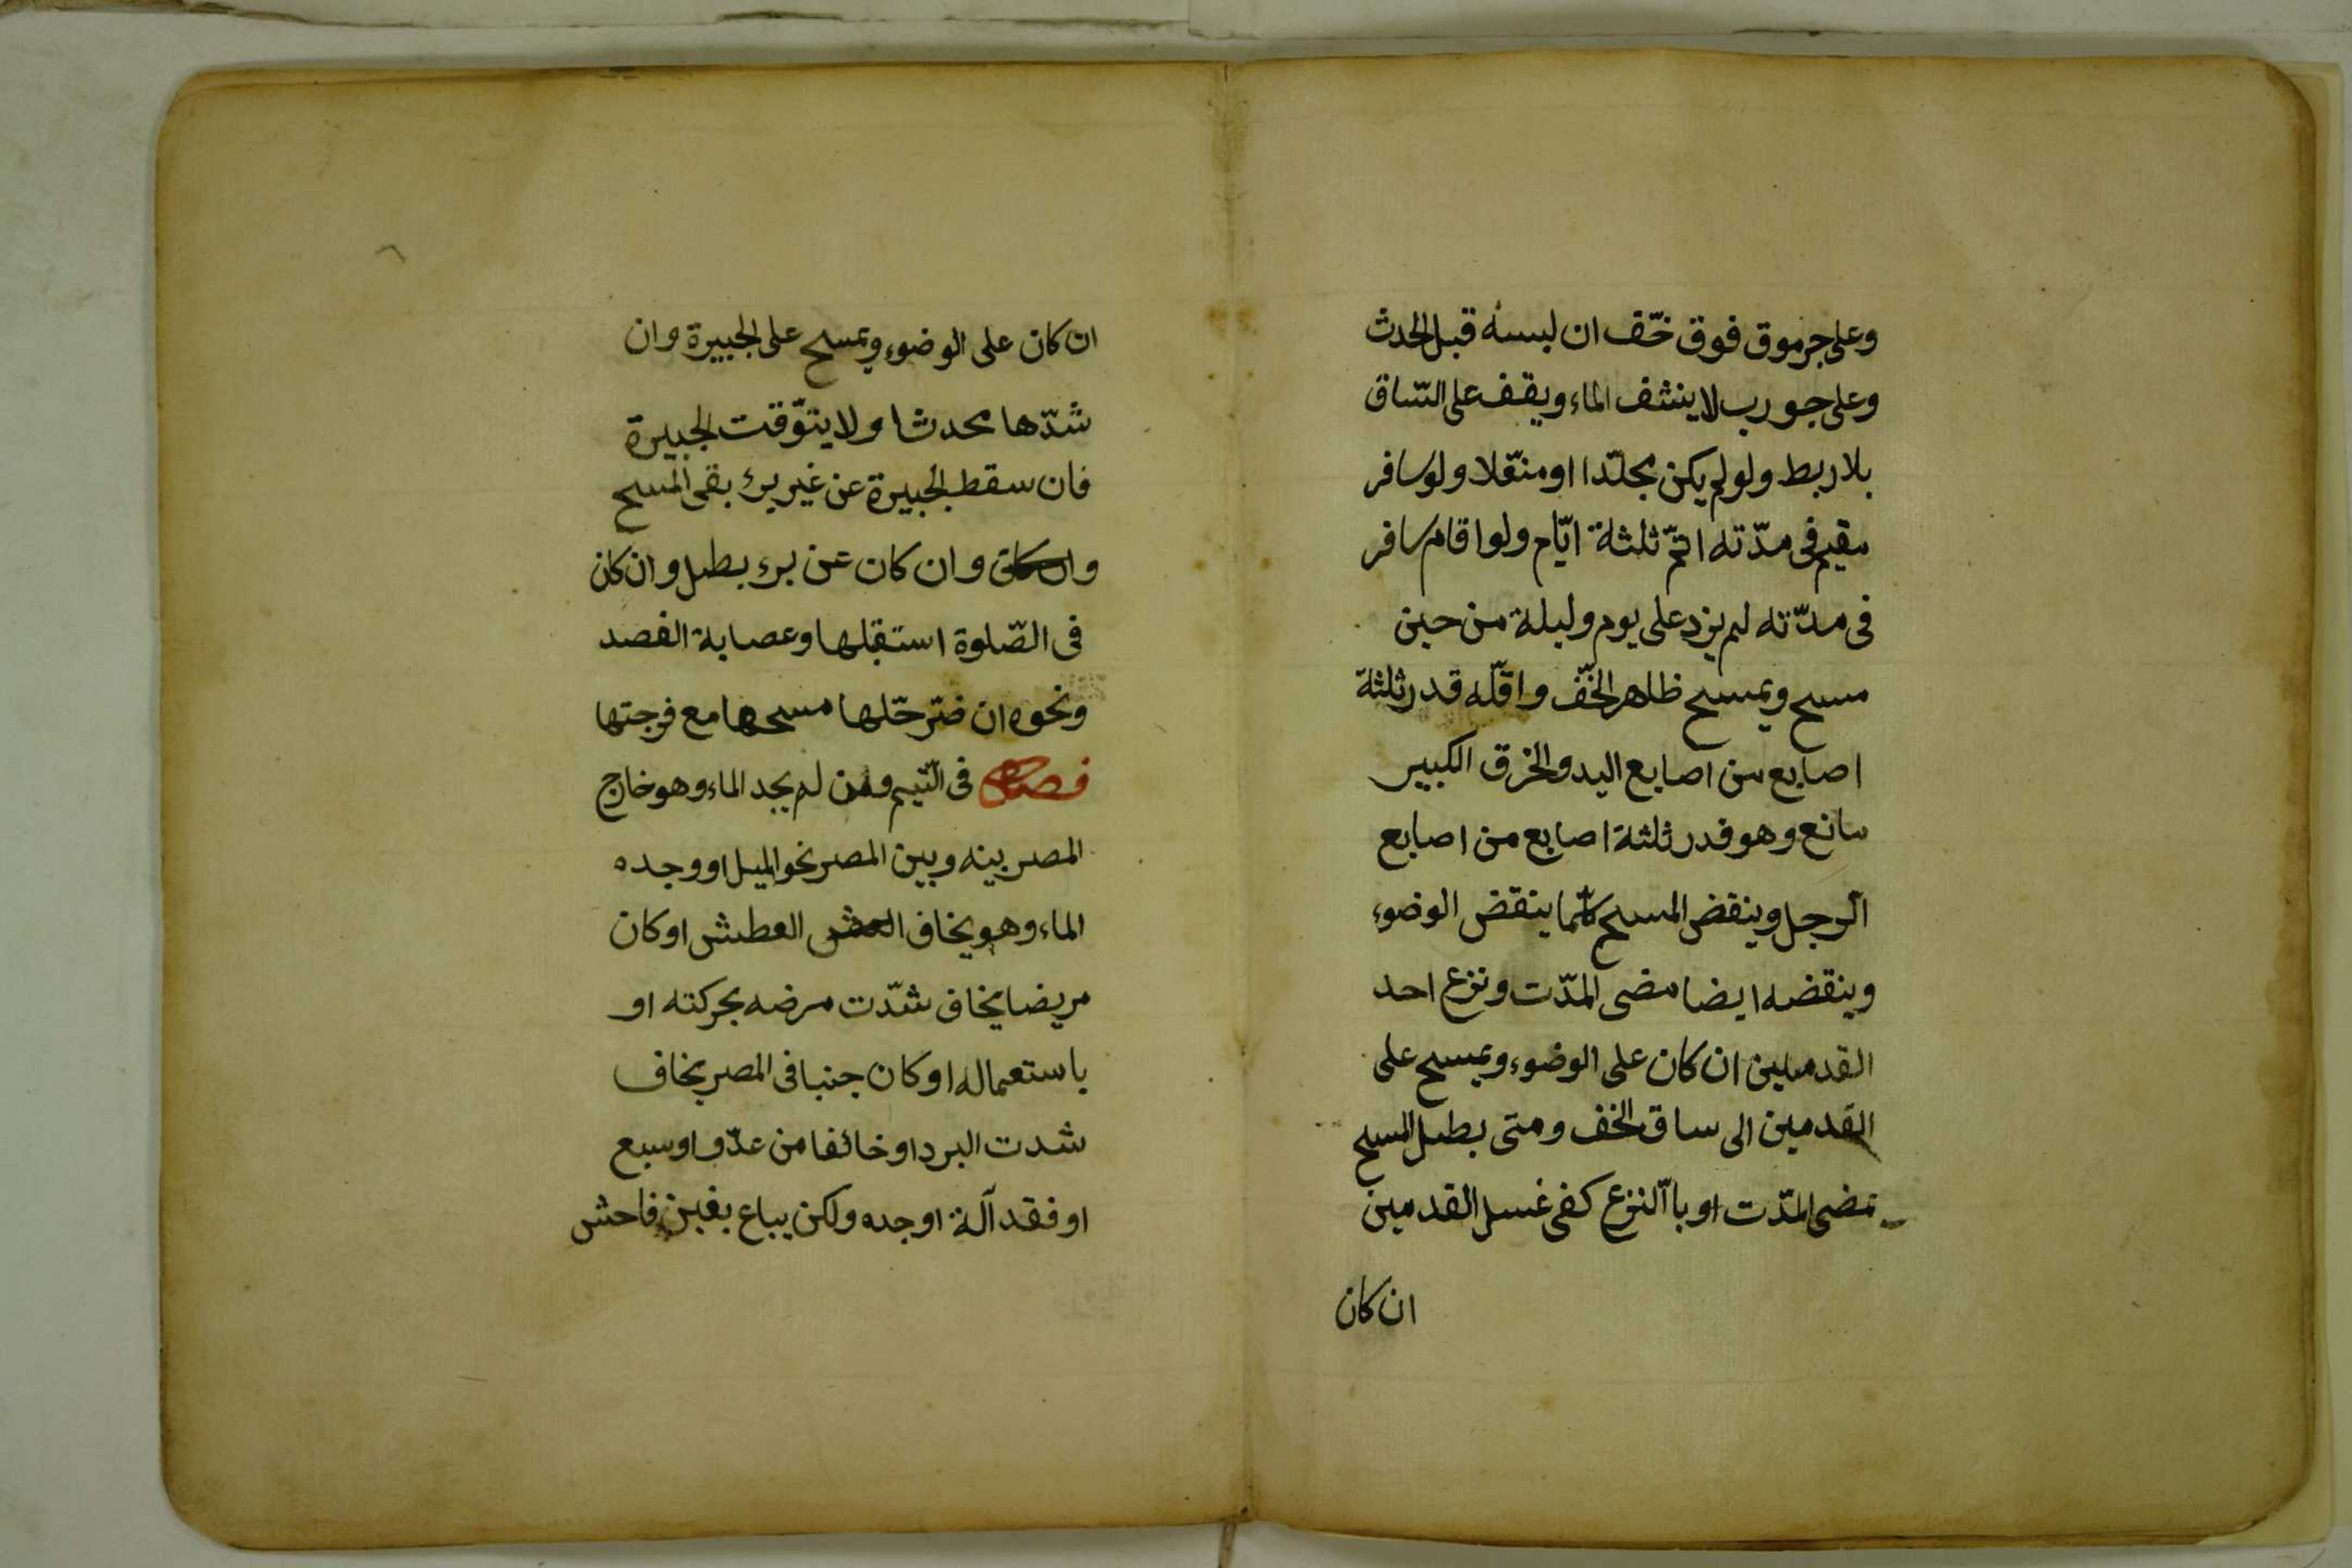 وعلى جرموق فوق خّف ان لبسه قبل الحدث
وعلى جورب لا ينشف الماء ويقف على السّاق
بلا ربط ولو لم يكن مجلّدا او منعّلا ولو سافر
مقيم فى مدّته اتمّ ثلثة ايّام ولو اقام سافر
فى مدّته لم يزد على يوم وليلة من حين
مسح ويمسح ظاهر الخّف واقلّه قدر ثلثة
اصابع من اصابع اليد والخرق الكبير
مانع وهو قدر ثلثة اصابع من اصابع
الّرجل وينقض المسح كلّما ينقض الوضوء
وينقضه ايضا مضى المدّت ونزع احد
القدمين ان كان على الوضوء ويمسح على
القدمين الى ساق الخف ومتى بطل المسح
بمضى المدّت او باّلنزع كفى غسل القدمين
ان كان
ان كان على الوضوء ويمسح على الجبيرة وان
شدّها محدثا ولا يتوّقت الجبيرة
فان سقط الجبيرة عن غير برء بقى المسح
وان كان وان كان عن برء بطل وان كان
فى الصّلوة استقبلها وعصابة الفصد
ونحوه ان ضّر حّلها مسحها مع فرجتها
فصل فى الّتيمم ومن لم يجد الماء وهو خارج
المصر بينه وبين المصر نحو الميل او وجده
الماء وهو يخاف العطش او كان
مريضا يخاف شدّت مرضه بحركته او
باستعماله او كان جنبا فى المصر يخاف
شدت البرد او خائفا من عدّو او سبع
او فقد آلة او جده ولكن يباع بغبن فاحش